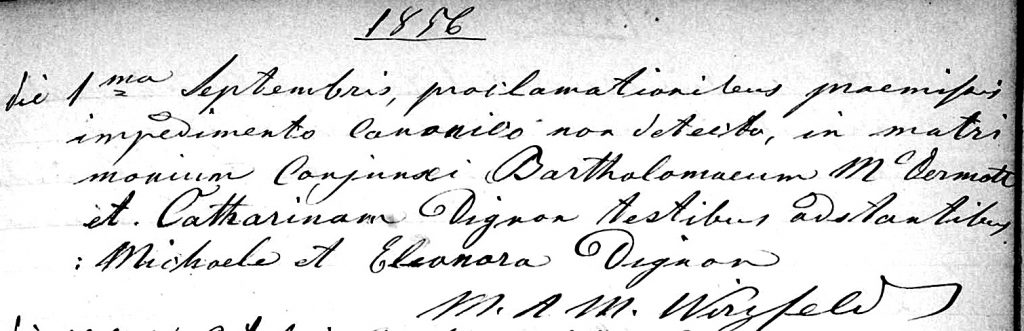 1856
die 1ma Septembris, proclamationibus praemissis
impedimento Canonico non detecto, in matri
monium Conjunxi Bartholomaeum Mc Dermott
et. Catharinam Dignon testibus adstantibus
: Michaele et Eleonora Dignon
M. A M. Wirzfeld